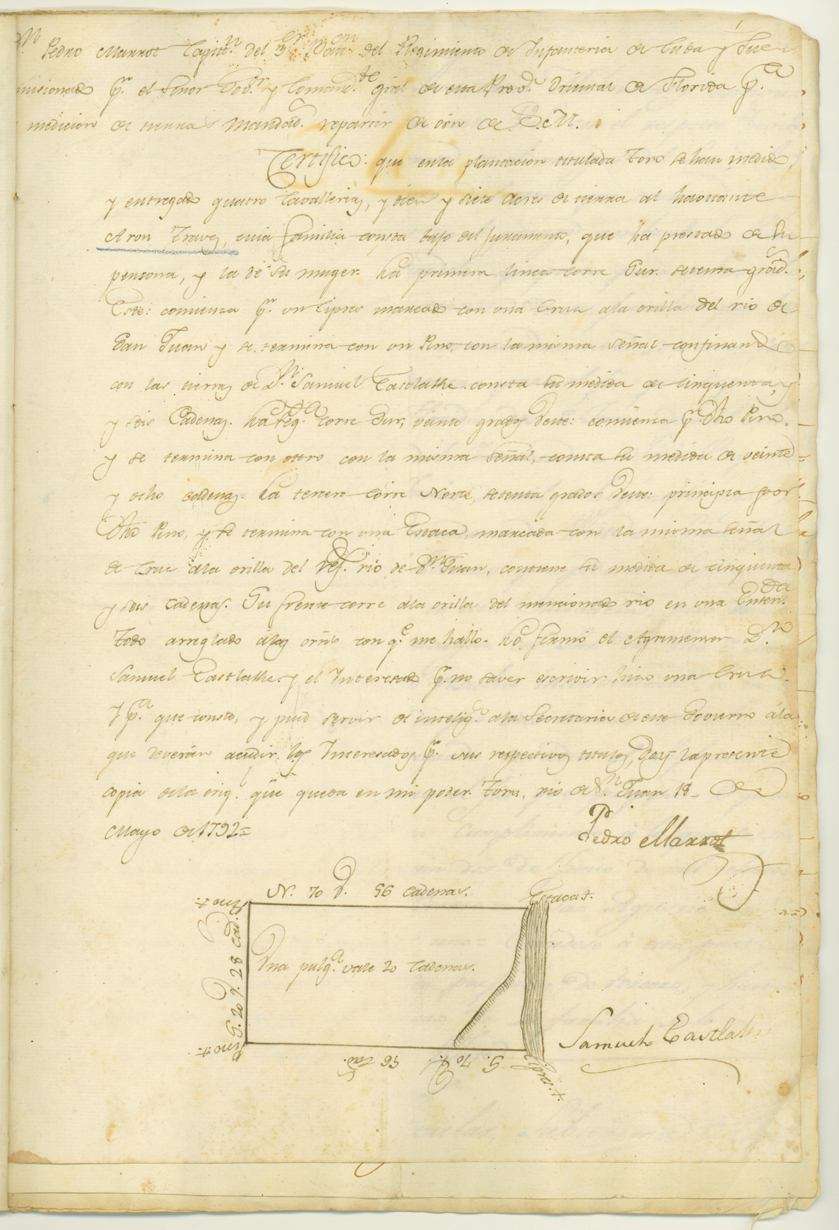 Dn Pedro Marrot Capitn del 3er Batn del Regimiento de Infanteria de Cuba y Jues
misionado pr el Señor Govr y Comandte gral de esta Prova Oriental de Florida pa
medicion de tierras Mandads repartir de orn de S. M.
Certifico: que enla plantacion titulada Toro se han medido,
y entregado quatro Cavallerias, y cien y siete Acres de tierra al havitante
Aron Traves, cuia familia consta bajo del juramento, que ha prestado de su
persona, y la de su muger. ha primera linea corre Sur. setenta grads.
Este: comienza pr un Cipres marcado con una Cruz ala orilla del rio de
San Juan y se termina con un Pino, con la misma señal confinando
con las tierras de Dn Samuel Eastlake consta su medida de cinquenta, y
y seis Cadenas. ha segda corre Sur, veinte grados Oeste: comienza pr dho Pino.
y se termina con otro con la misma señal, consta su medida de veinte
y ocho cadenas. La tercera corre Norte, setenta grados Oeste: principia por
dho Pino, y se termina con una Estaca, marcada con la misma señal
de Cruz ala orilla del rio de Sn Juan, contiene su medida de cinquenta
y seis Cadenas. Su frente corre ala orilla del mencionado rio en una
Todo arreglado alas orns con qe me hallo. ho firmó el Agrimensor Dn
Samuel Eastlake, y el Interesado pr no saver escrivir hizo una Cruz.
Y pa que conste, y pueda servir de inteliga ala Secretaria de este Govierno ála
que deverán acudir los Interesados pr sus respectivos titulos, doy la presente
copia dela origl que queda en mi poder. Toris, rio de Sn Juan 18 de
Mayo de 1792=
Pedro Marrot
N. 70 O. 56 Cadenas.
Estaca +.
Pino +
S. 20 O. 28 Cad.
Una pulga vale 20 Cadenas.
Pino +
S. 70 E. 56 Cad.
Cipres +.
Samuel Eastlake